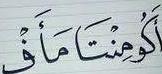 أَكُومِنْتَا مَأَفْ